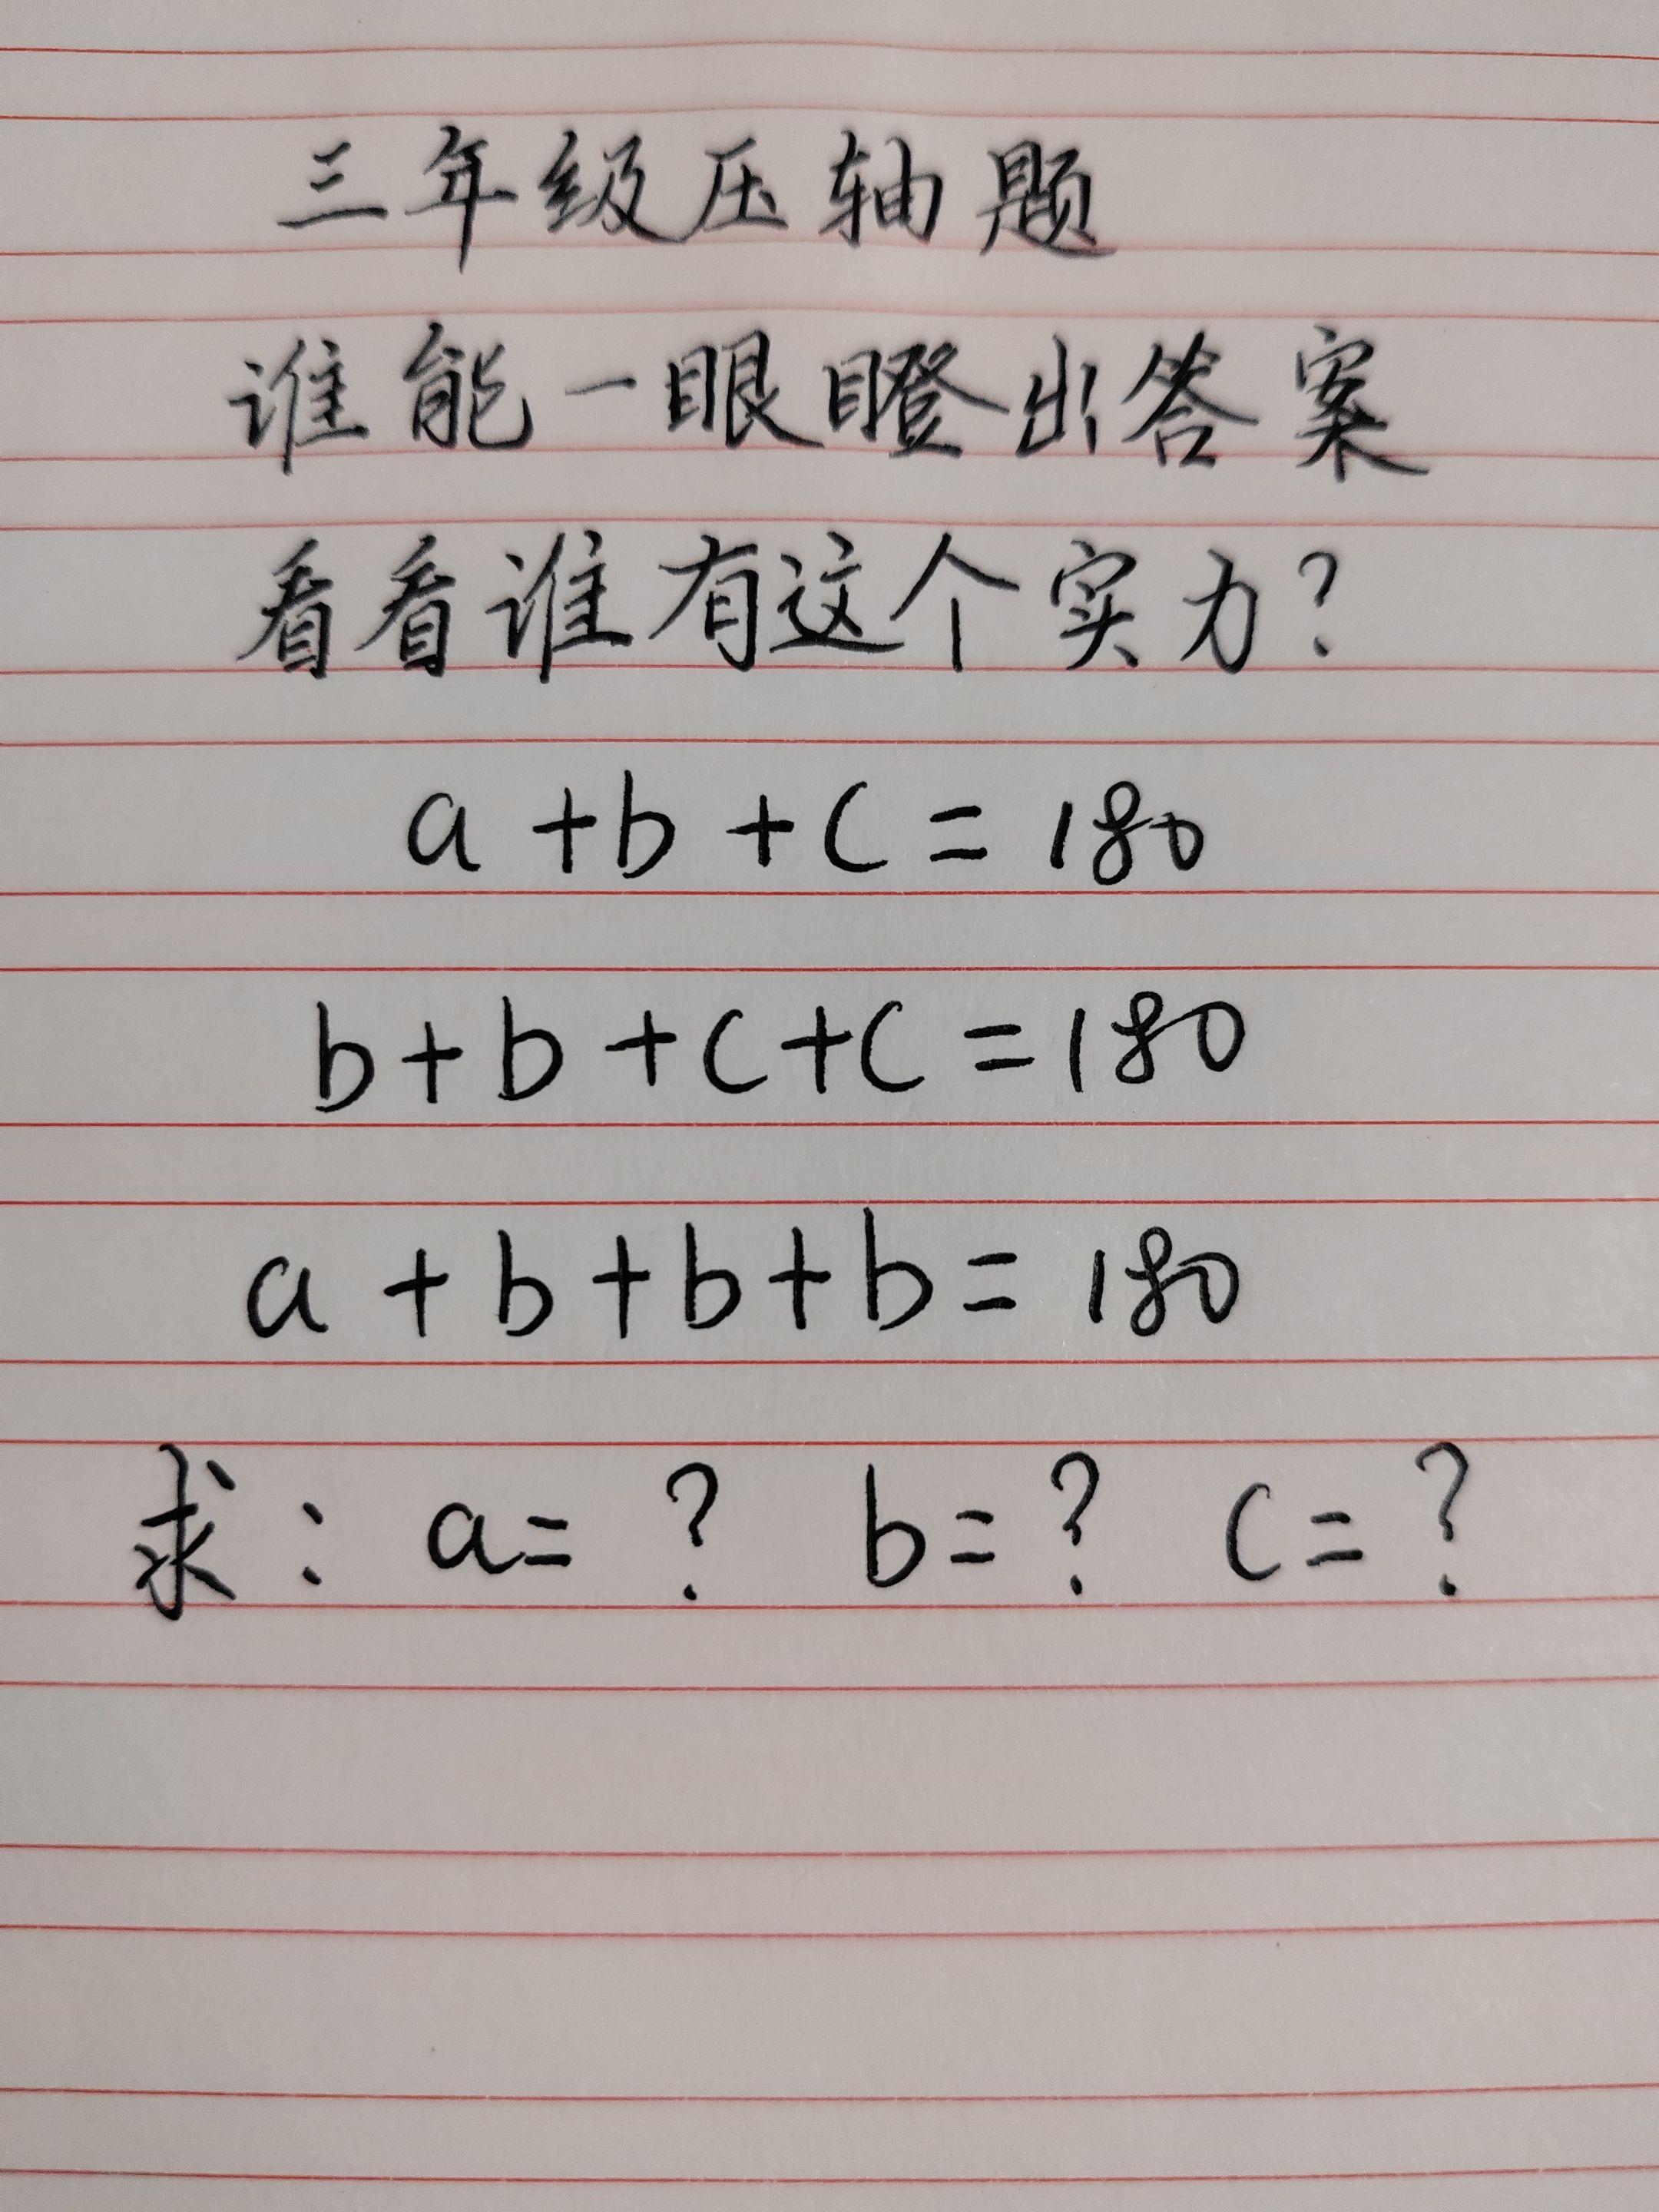 三年级压轴题
谁能一眼瞪出答案
看看谁有这个实力?
a+b+c=180
b+b+c+c=180
a+b+b+b=180
求:a=? b=? c=?